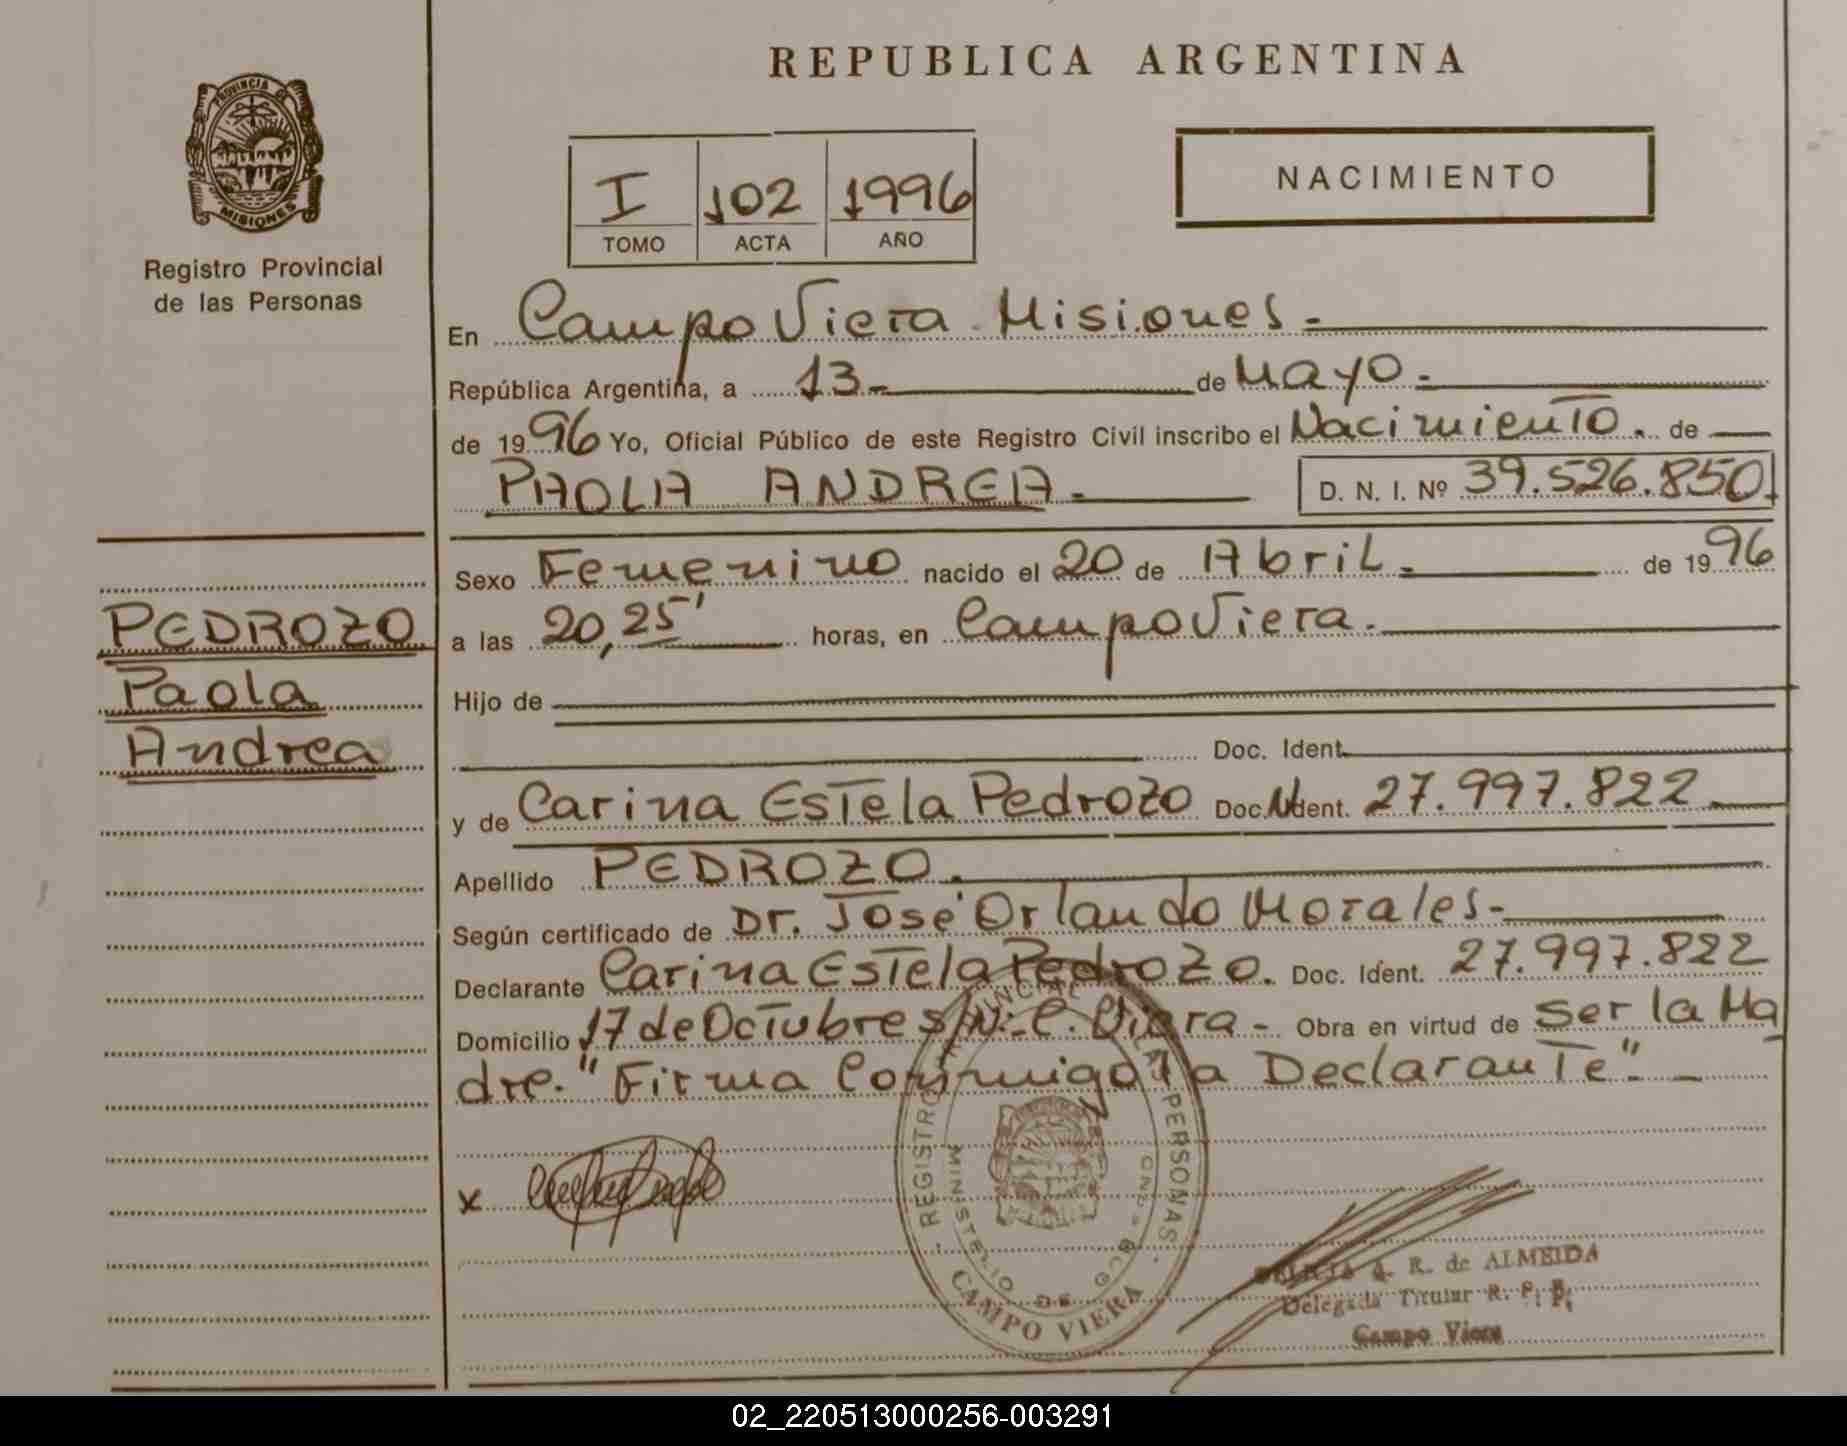 REPUBLICA ARGENTINA
PROVINCIA DE
MISIONES
Registro Provincial
de las Personas
I 102 1996
TOMO ACTA AÑO
NACIMIENTO
En Campo Viera Misiones.-
República Argentina, a 13.- de Mayo.-
de 1996 Yo, Oficial Público de este Registro Civil inscribo el Nacimiento. de
PAOLA ANDREA.- D. N. I. Nº 39.526.850.
Sexo Femenino nacido el 20 de Abril.- de 1996
PEDROZO
Paola
Andrea
a las 20,25' horas, en Campo Viera.-
Hijo de
Doc. Ident.
y de Carina Estela Pedrozo Doc. Ident. 27.997.822.-
Apellido PEDROZO.-
Según certificado de Dr. José Orlando Morales-
Declarante Carina Estela Pedrozo. Doc. Ident. 27.997.822
Domicilio 17 de Octubre s/N.- C. Viera - Obra en virtud de ser la Ma
dre. "Firma Conmigo la Declarante".-
x
REGISTRO PROVINCIAL DE LAS PERSONAS
MINISTERIO DE
CAMPO VIERA
R. de ALMEIDA
Delegada Titular R. P. P.
Campo Viera
02_220513000256-003291